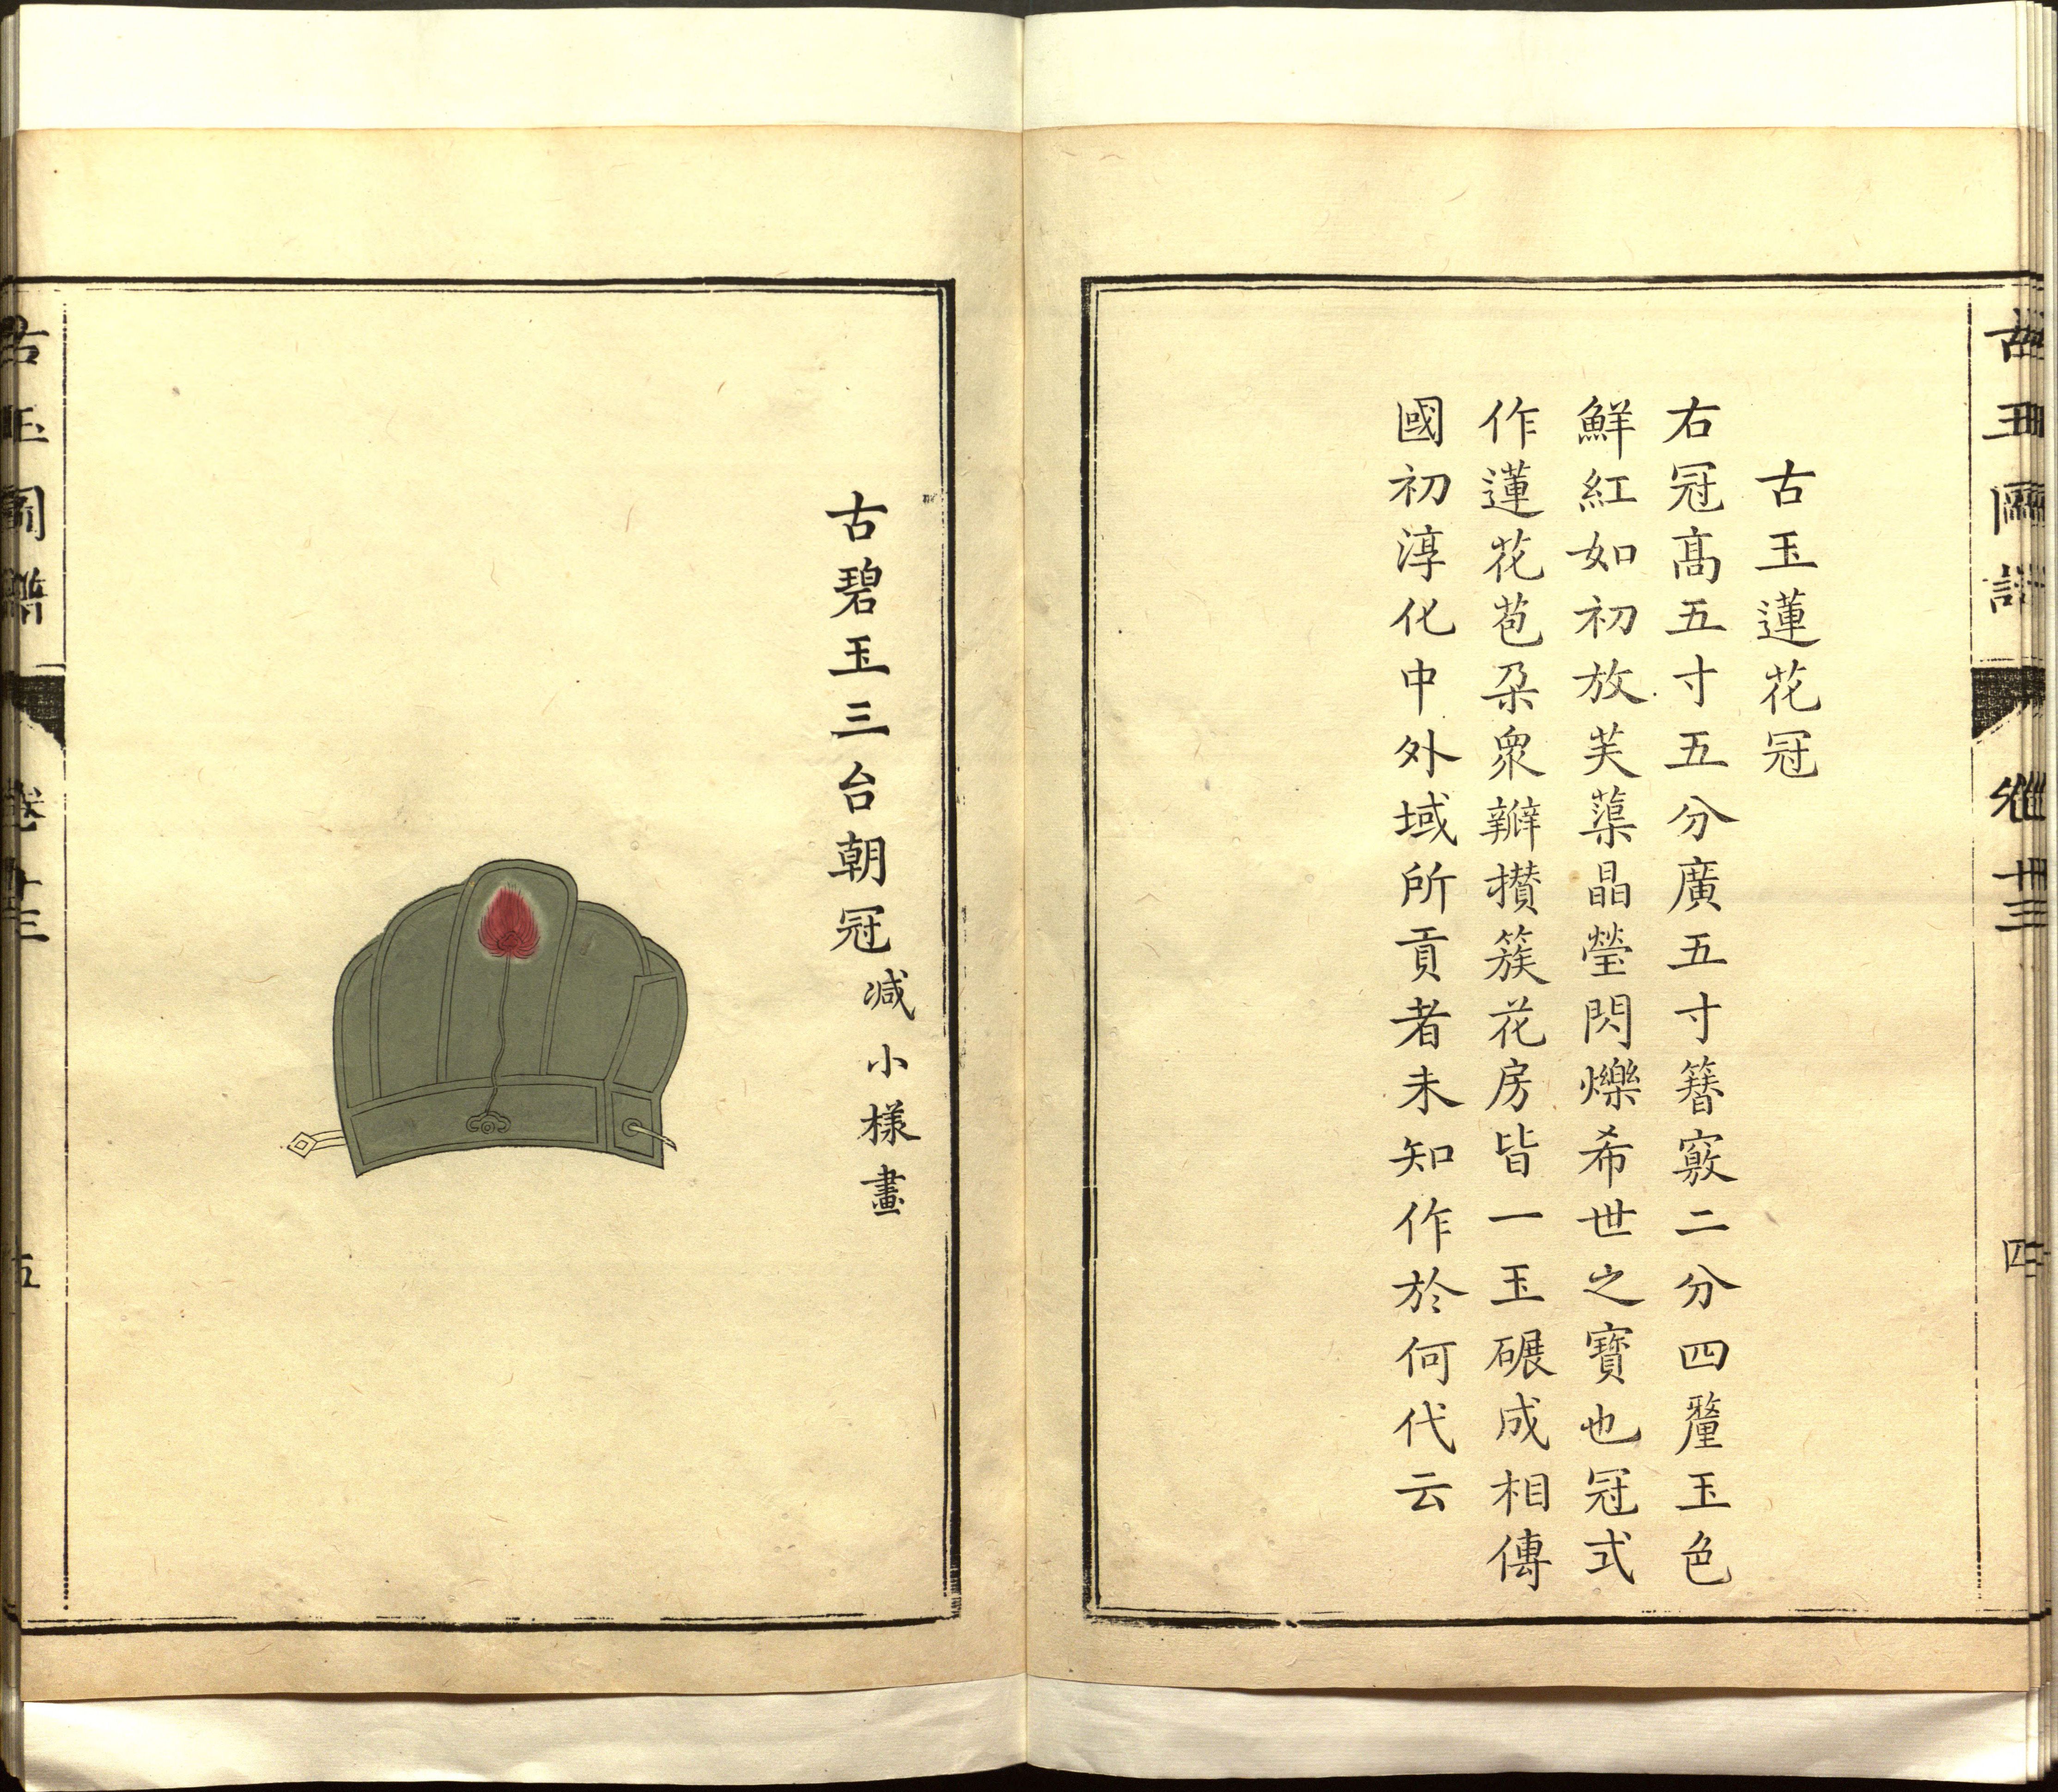 古玉圖譜 卷十三 四
古玉蓮花冠
右冠髙五寸五分廣五寸簪竅二分四釐玉色
鮮紅如初放芙蕖晶瑩閃爍希世之寶也冠式
作蓮花苞朶衆瓣攅簇花房皆一玉碾成相傳
國初淳化中外域所貢者未知作於何代云
古碧玉三台朝冠减小樣畫
古玉圖譜 卷十三 五